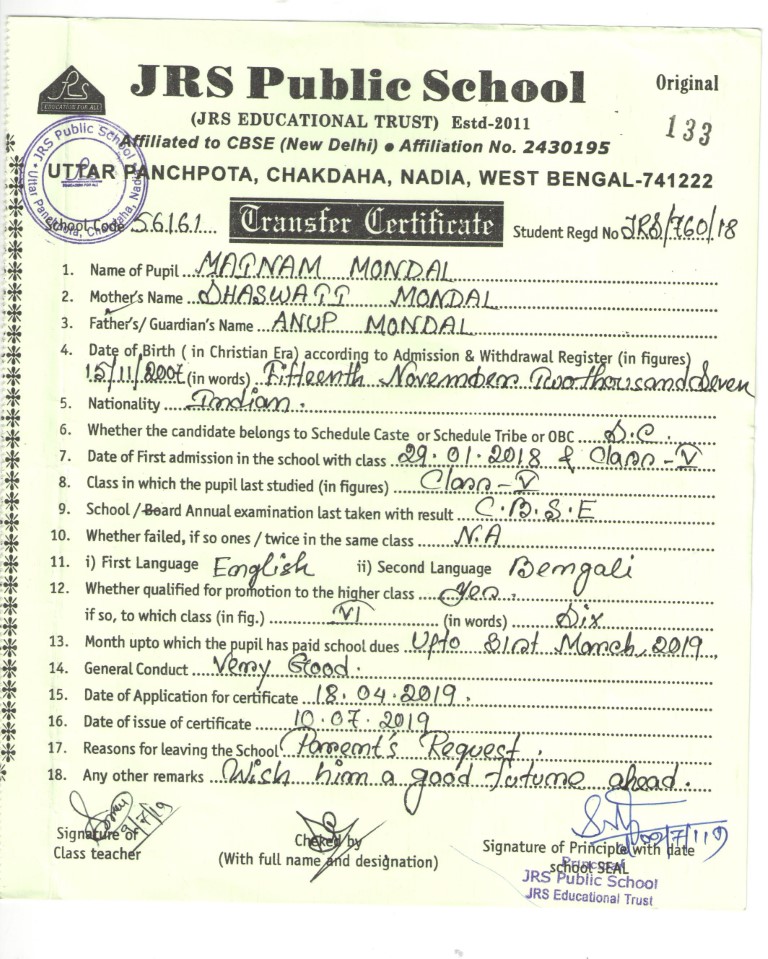 JRS Public School
Original
EDUCATION FOR ALL
(JRS EDUCATIONAL TRUST) Estd-2011
133
Affiliated to CBSE (New Delhi) ● Affiliation No. 2430195
JRS Public School
Uttar Panchpota, Chakdaha, Nadia
UTTAR PANCHPOTA, CHAKDAHA, NADIA, WEST BENGAL-741222
School Code 56161
Transfer Certificate
Student Regd No JRS/760/18
1. Name of Pupil MAINAM MONDAL
2. Mother's Name SHASWATI MONDAL
3. Father's/ Guardian's Name ANUP MONDAL
4. Date of Birth ( in Christian Era) according to Admission & Withdrawal Register (in figures)
15/11/2007 (in words) Fifteenth November Two thousand Seven
5. Nationality Indian.
6. Whether the candidate belongs to Schedule Caste or Schedule Tribe or OBC S.C.
7. Date of First admission in the school with class 29.01.2018 & Class-V
8. Class in which the pupil last studied (in figures) Class-V
9. School / Board Annual examination last taken with result C.B.S.E
10. Whether failed, if so ones / twice in the same class N.A
11. i) First Language English ii) Second Language Bengali
12. Whether qualified for promotion to the higher class Yes.
if so, to which class (in fig.) VI (in words) Six
13. Month upto which the pupil has paid school dues Upto 31st March, 2019
14. General Conduct Very Good.
15. Date of Application for certificate 18.04.2019.
16. Date of issue of certificate 10.07.2019
17. Reasons for leaving the School Parent's Request.
18. Any other remarks Wish him a good future ahead.
Signature of
Class teacher
Cheked by
(With full name and designation)
Signature of Principle with date
school SEAL
Principal
JRS Public School
JRS Educational Trust